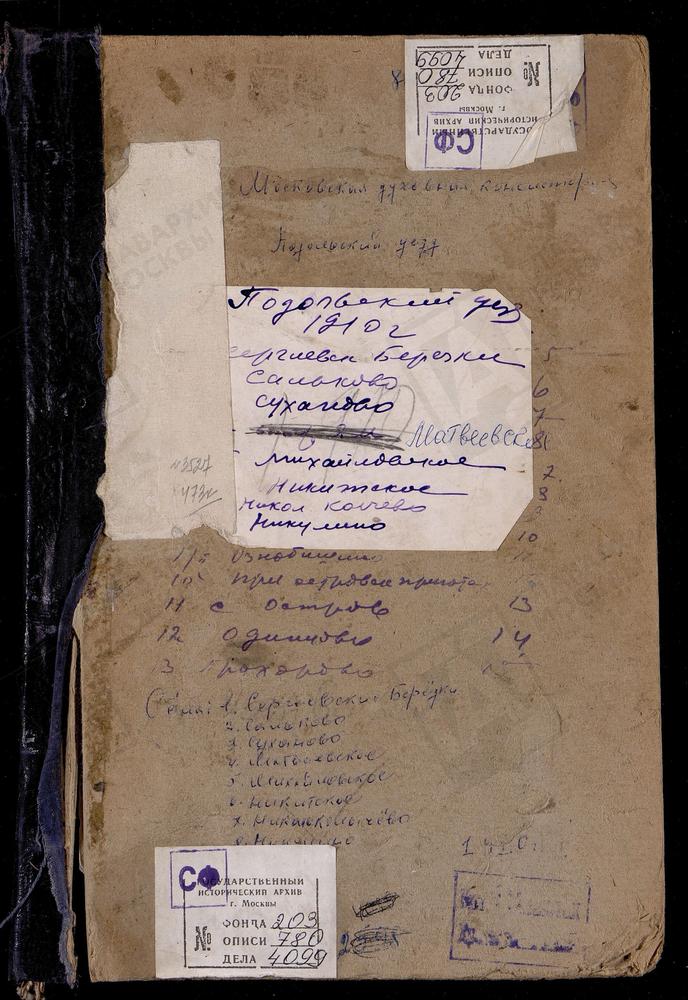 СФ
ГОСУДАРСТВЕННЫЙ
ИСТОРИЧЕСКИЙ АРХИВ
г. Москвы
ФОНДА 203
№ ОПИСИ 780
ДЕЛА 4099
Московская духовная консистория
Подольский уезд
Подольский уезд
1910 г
Сергиевск Березки 5
Сальково 6
Суханово 7
Матвеевское 8
Михайловское 7
Никитское 8
Никол Кончево
Никулино 10
Ознобишино
При островск приюта
11 с Остров 13
12 Одинцово 14
13 Прохорово
Села: 1. Сергиевски Берёзки
2. Сальково
3. Суханово
4. Матвеевское
5. Михайловское
6. Никитское
7.
8. Никулино
СФ
ГОСУДАРСТВЕННЫЙ
ИСТОРИЧЕСКИЙ АРХИВ
г. Москвы
ФОНДА 203
№ ОПИСИ 780
ДЕЛА 4099